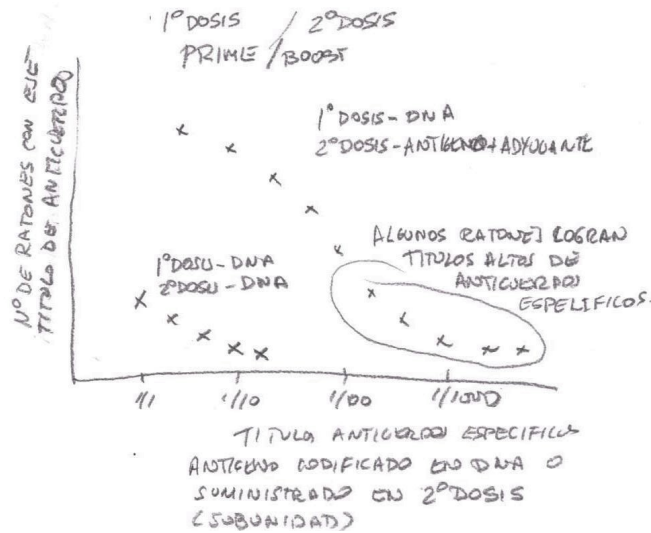 1º DOSIS / 2º DOSIS
PRIME / BOOST
Nº DE RATONES CON ESE
TITULO DE ANTICUERPO
1º DOSIS - DNA
2º DOSIS - ANTIGENO + ADYUVANTE
ALGUNOS RATONES LOGRAN
TITULOS ALTOS DE
ANTICUERPOS
ESPECIFICOS.
1º DOSIS - DNA
2º DOSIS - DNA
1/1
1/10
1/100
1/1000
TITULO ANTICUERPOS ESPECIFICOS
ANTIGENO CODIFICADO EN DNA O
SUMINISTRADO EN 2º DOSIS
(SUBUNIDAD)